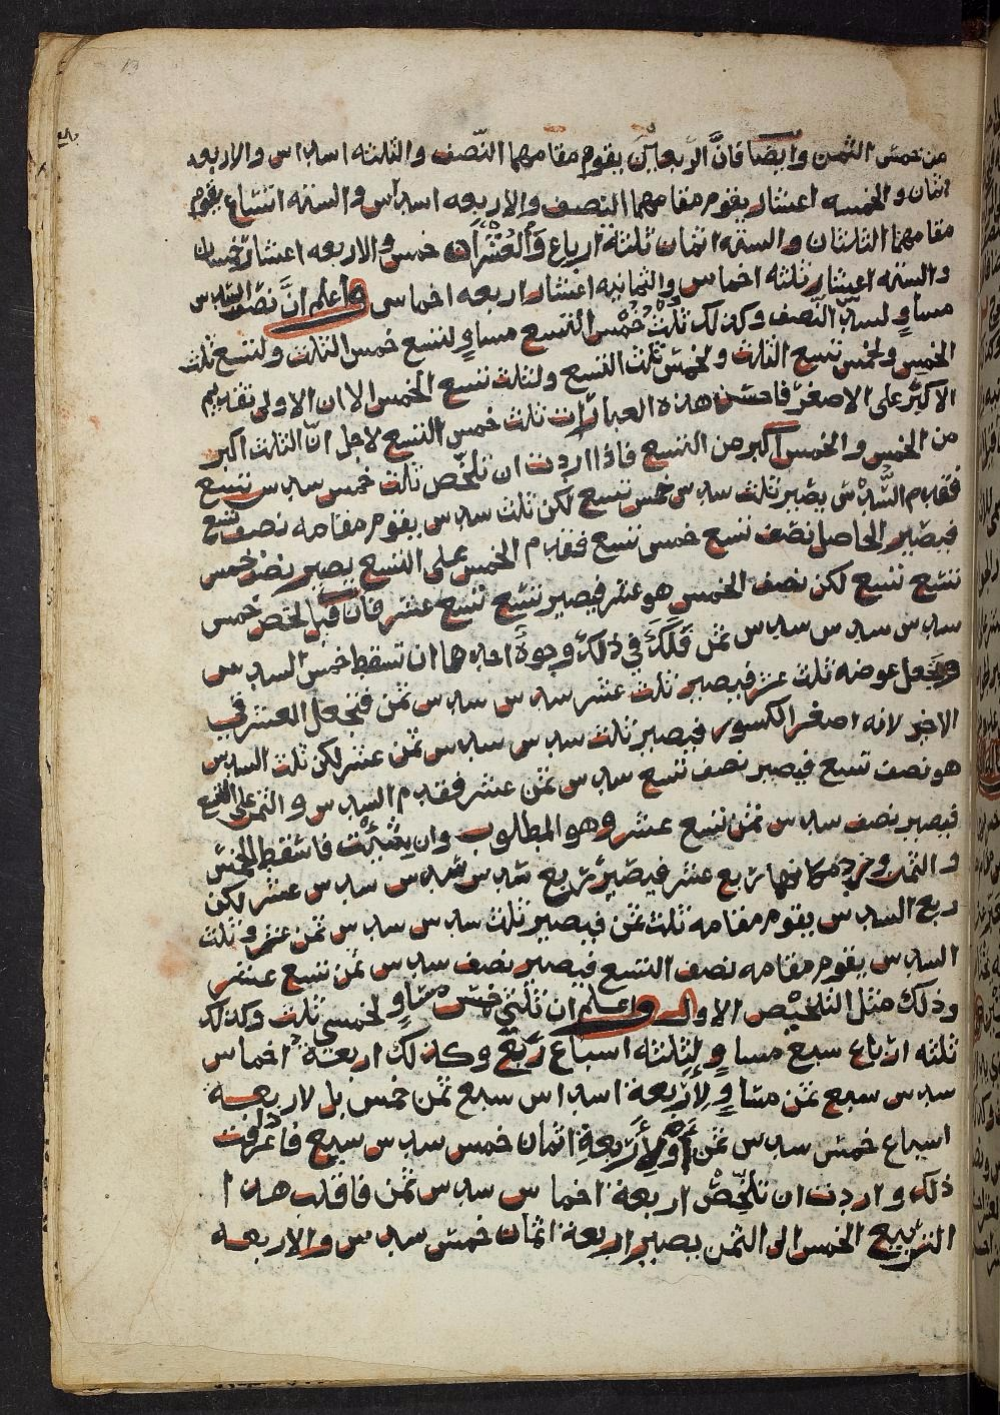 من خمس الثمن وايضا فانَّ الرّبعين يقوم مقامهما النّصف والثلثه اسداس والاربعه
اثمان والخمسه اعشار يقوم مقامهما النصف والاربعه اسداس والسته اتساع يقوم
مقامهما الثلثان والسته اثمان ثلثة ارباع والعُشْران خمس والاربعه اعشار خمسان
والسته اعشار ثلثه اخماس والثمانيه اعشار اربعه اخماس واعلم انَّ نصف السدس
مساوٍ لسدس النّصف وكذلك ثلث خُمْس التسع مساوٍ لتسع خمس الثلث ولتسع ثلث
الخمس ولخمس تسع الثلث ولخمس ثلث التسع ولثلث تسع الخمس الا ان الاولى تقديم
الاكبر على الاصغر فاحسن هذه العبارات ثلث خمس التسع لاجل انّ الثلث اكبر
من الخمس والخمس اكبر من التسع فاذا اردت ان تلخّص ثلث خمس سدس تسع
فقدم السُّدْس يصير ثلث سدس خمس تسع لكن ثلث سدس يقوم مقامه نصف تسع
فيصير الحاصل نصف تسع خمس تسع فقدم الخمس على التسع يصير نصف خمس
تسع تسع لكن نصف الخمس هو عشر فيصير تسع تسع عشر فان قيل لخص خمس
سدس سدس سدس ثمن فلك في ذلك وجوه احدهما ان تسقط خمس السدس
وتجعل عوضه ثلث عشر فيصير ثلث عشر سدس سدس ثمن فتجعل العشر في
الاخر لانه اصغر الكسور فيصير ثلث سدس سدس ثمن عشر لكن ثلث السدس
هو نصف تسع فيصير نصف تسع سدس ثمن عشر فقدم السدس والثمن على التسع
فيصير نصف سدس ثمن تسع عشر وهو المطلوب وان شئت فاسقط الخمس
والثمن وزد مكانهما ربع عشر فيصير ربع سدس سدس سدس عشر لكن
ربع السدس يقوم مقامه ثلث ثمن فيصير ثلث سدس سدس ثمن عشر وثلث
السدس يقوم مقامه نصف التسع فيصير نصف سدس ثمن تسع عشر
وذلك مثل التلخيص الاول واعلم ان ثلثي خمس مساوٍ لخمسي ثلث وكذلك
ثلثه ارباع سبع مساوٍ لثلثه اسباع ربع وكذلك اربعة اخماس
سدس سبع ثمن مساوٍ لاربعة اسداس سبع ثمن خمس بل لاربعة
اسباع خمس سدس ثمن أو لأربعةِ اثمان خمس سدس سبع فاذا عرفت
ذلك واردت ان تلخّص اربعة اخماس سدس ثمن فاقلب هذا
التربيع الخمس الى الثمن يصير اربعة اثمان خمس سدس والاربعه